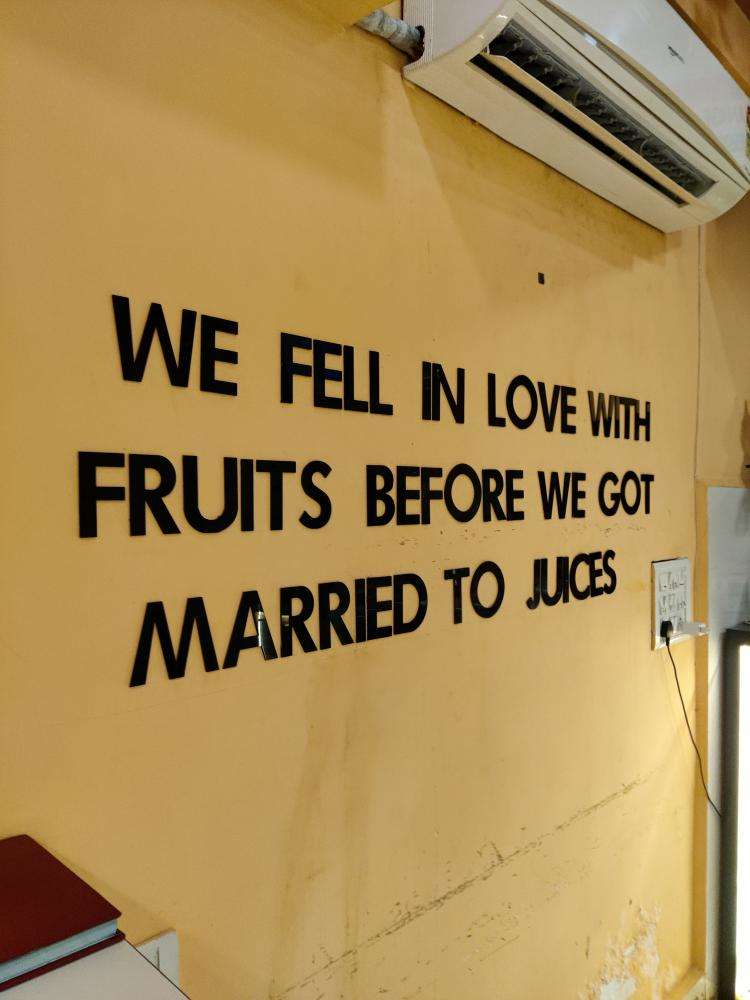 WE FELL IN LOVE WITH
FRUITS BEFORE WE GOT
MARRIED TO JUICES